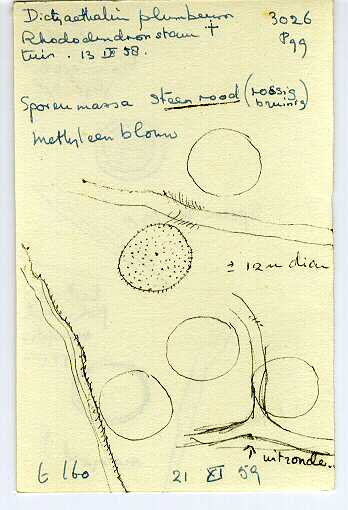 Dictyaethalium plumbeum 3026
Rhododendronstam † P99
tuin. 13 IX 58.
Sporenmassa steenrood (rossig bruinig)
Methyleen blauw
± 12 μ diam
↑ uitronde..
160
21 XI 59